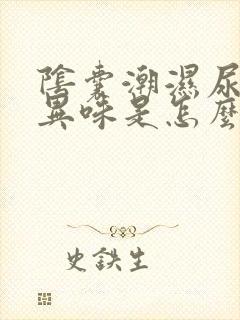 陰囊潮濕尿
異味是怎麼
史鉄生